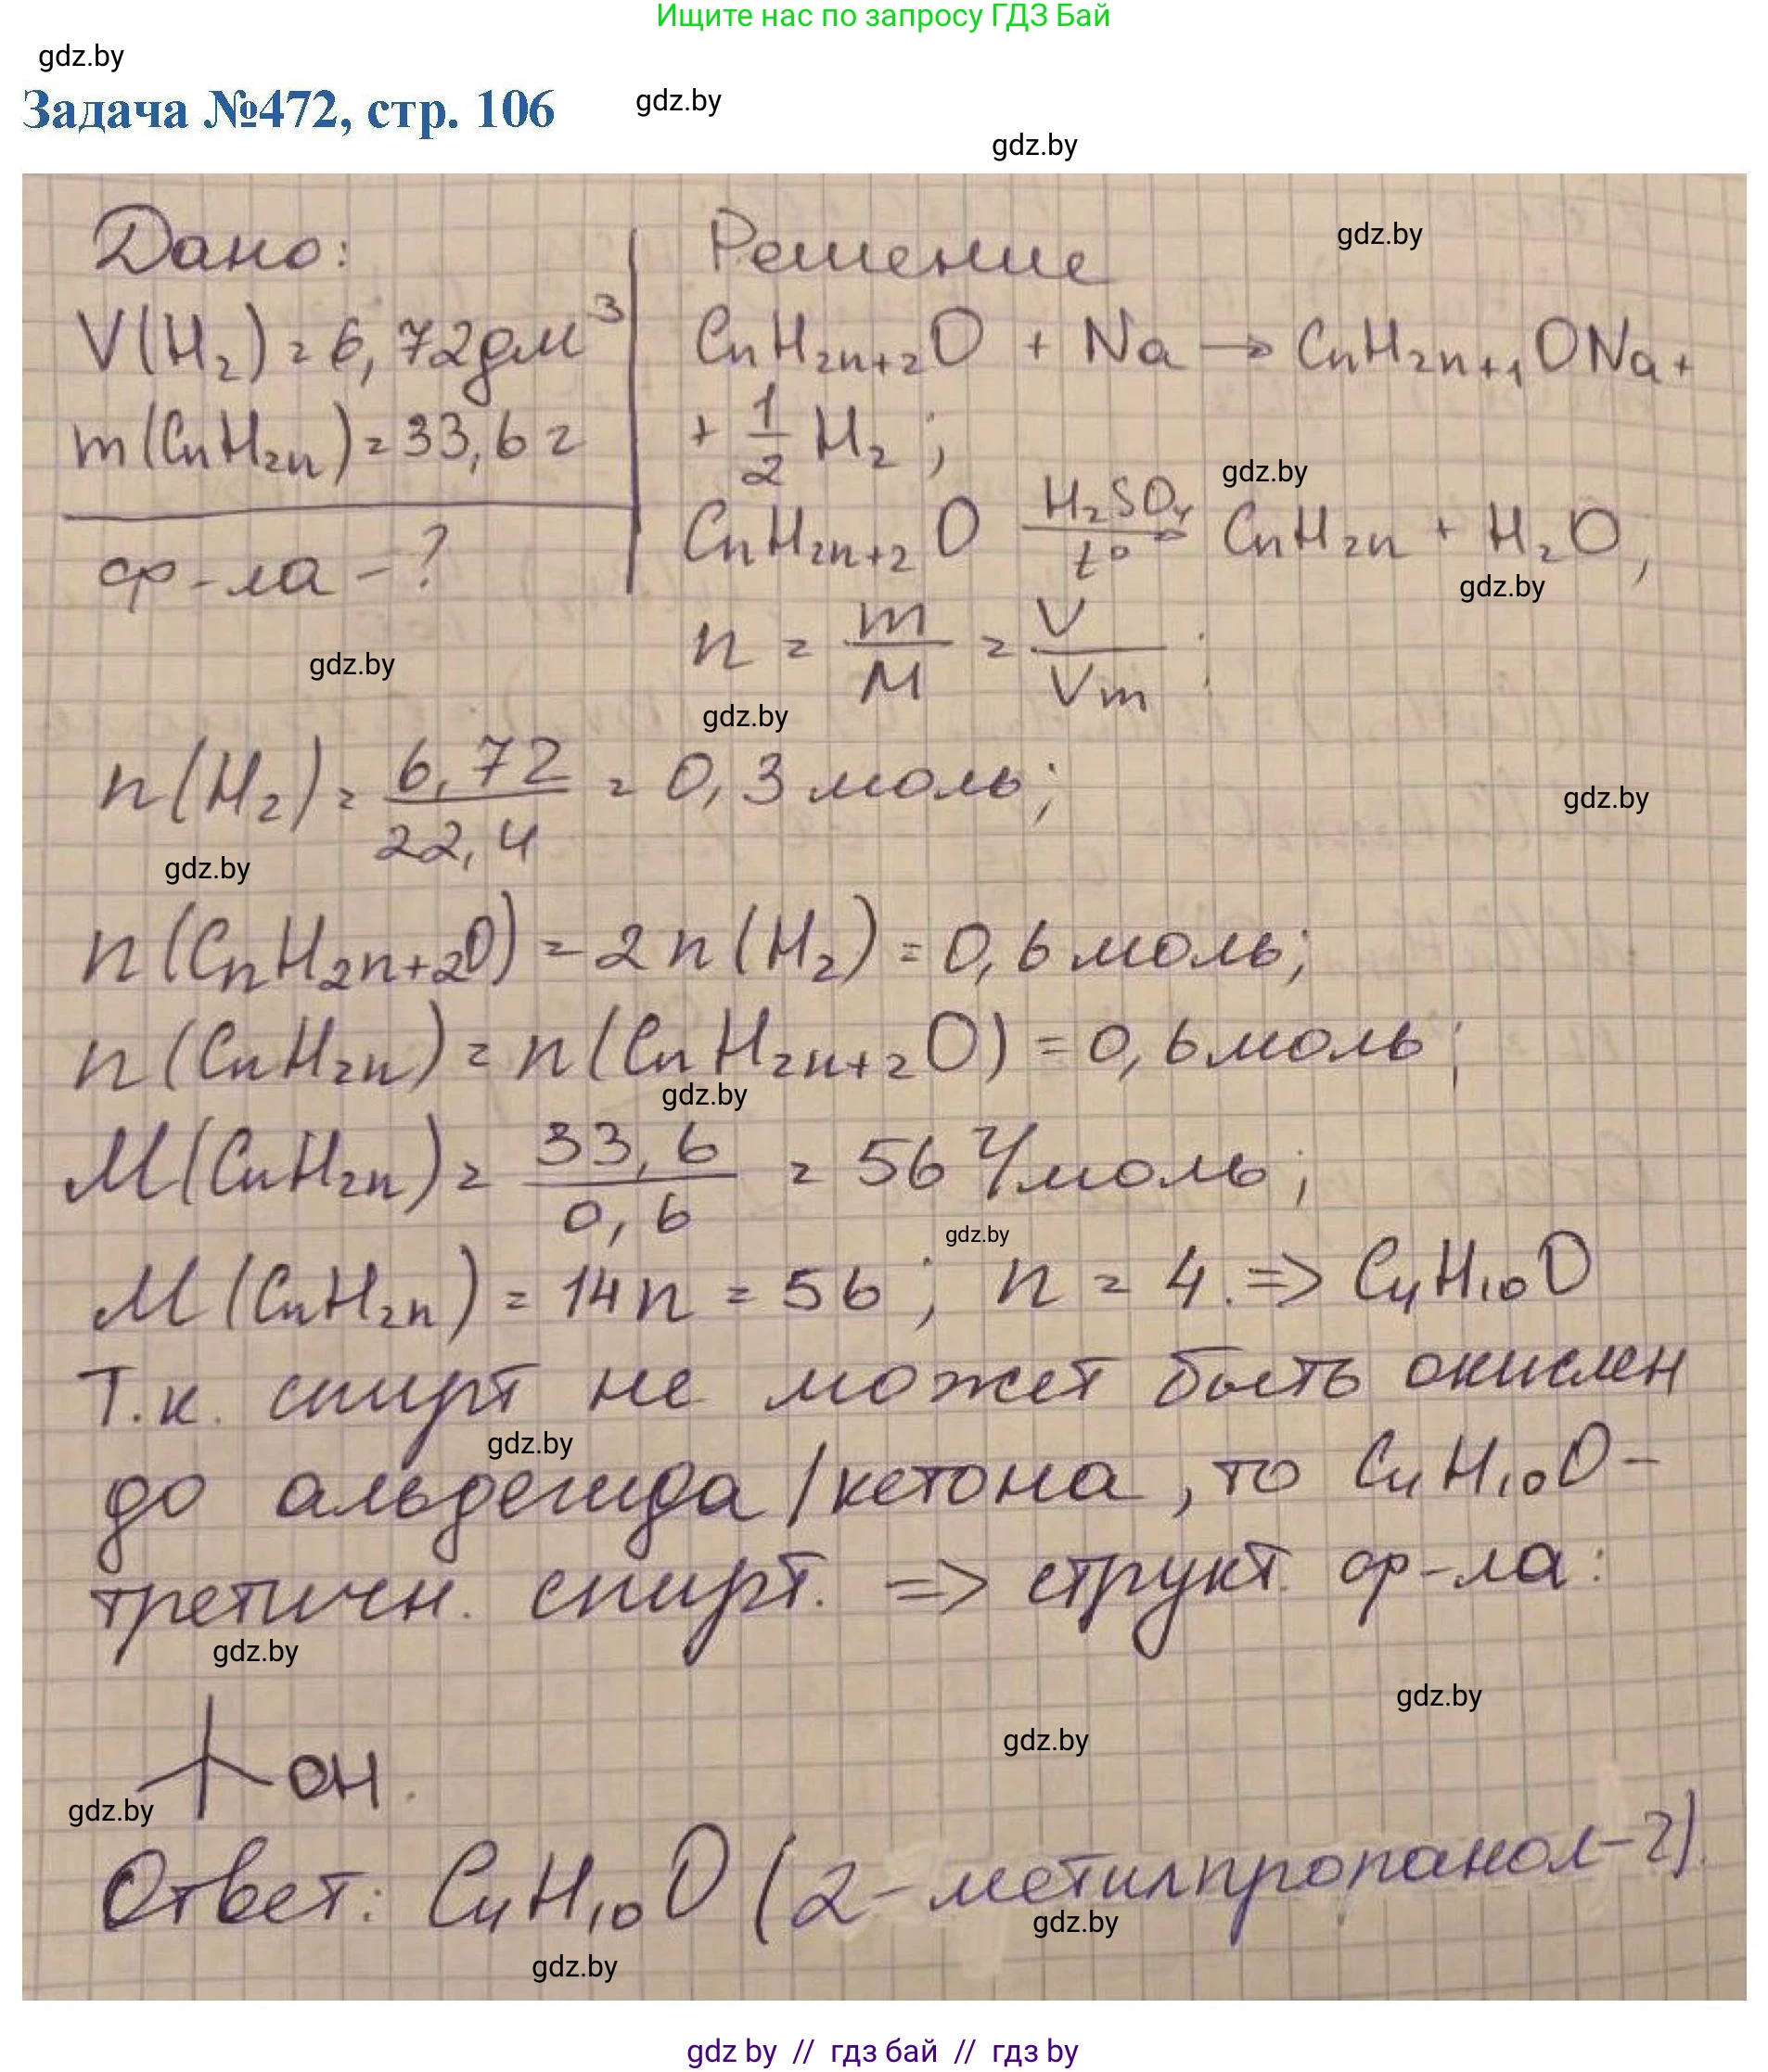 Ищите нас по запросу ГДЗ Бай
gdz.by
Задача №472, стр. 106
gdz.by
gdz.by
Дано:
Решение
gdz.by
V(H₂) = 6,72 дм³
CnH₂n₊₂O + Na → CnH₂n₊₁ONa +
m(CnH₂n) = 33,6 г
+ 1/2 H₂ ;
gdz.by
ф-ла - ?
CnH₂n₊₂O H₂SO₄ t° → CnH₂n + H₂O ;
gdz.by
n = m/M = V/Vm ;
gdz.by
gdz.by
n(H₂) = 6,72/22,4 = 0,3 моль ;
gdz.by
gdz.by
n(CnH₂n₊₂O) = 2n(H₂) = 0,6 моль ;
n(CnH₂n) = n(CnH₂n₊₂O) = 0,6 моль ;
gdz.by
M(CnH₂n) = 33,6/0,6 = 56 г/моль ;
gdz.by
M(CnH₂n) = 14n = 56 ; n = 4. => C₄H₁₀O
Т.к. спирт не может быть окислен
gdz.by
до альдегида/кетона, то C₄H₁₀O -
третичн. спирт. => структ. ф-ла:
gdz.by
gdz.by
gdz.by
OH.
gdz.by
Ответ: C₄H₁₀O (2-метилпропанол-2).
gdz.by
gdz.by
gdz by // гдз бай // гдз by